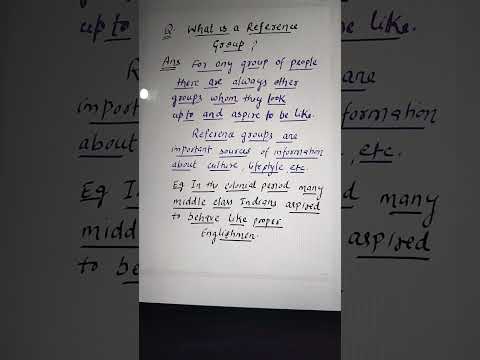 Q What is a Reference
Group?
Ans For any group of people
there are always other
groups whom they look
up to and aspire to be like.
Reference groups are
important sources of information
about culture, lifestyle, etc.
Eg In the colonial period many
middle class Indians aspired
to behave like proper
Englishmen.